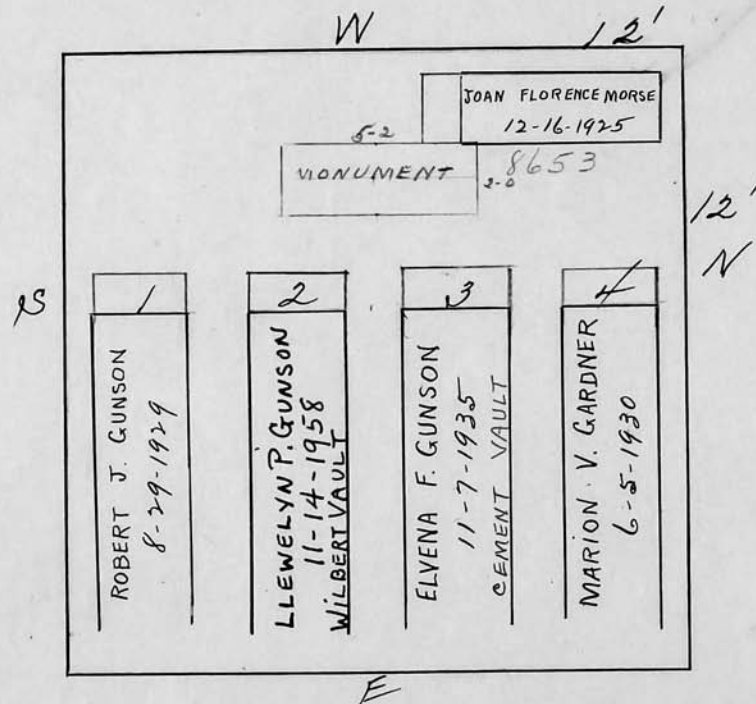 W
12'
JOAN FLORENCE MORSE
12-16-1925
5-2
MONUMENT
2-0
8653
12'
N
S
1
ROBERT J. GUNSON
8-29-1929
2
LLEWELYN P. GUNSON
11-14-1958
WILBERT VAULT
3
ELVENA F. GUNSON
11-7-1935
CEMENT VAULT
4
MARION V. GARDNER
6-5-1930
E